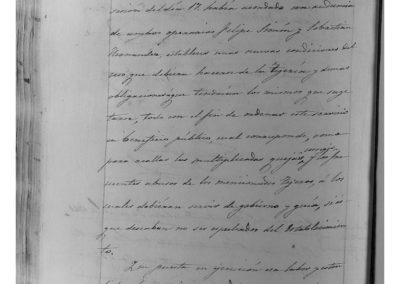 sesion del dia 17. habia acordado con audiencia
de ambos operarios Felipe Simón y Sebastian
Hernandez, establecer unas nuevas condiciones del
uso que debieran hacerse de la Tijera y demas
obligaciones que tendrian los mismos que suge
tarse, todo con el fin de ordenar este servicio
en beneficio publico, cual corresponde, como
para acallar las multiplicadas quejas, y los fre
cuentes abusos de los mencionados Tijeras, á los
cuales debieran servir de gobierno y guia, si es
que deseaban no ser espulsados del Establecimien
to.
Que puesta en ejecucion esa